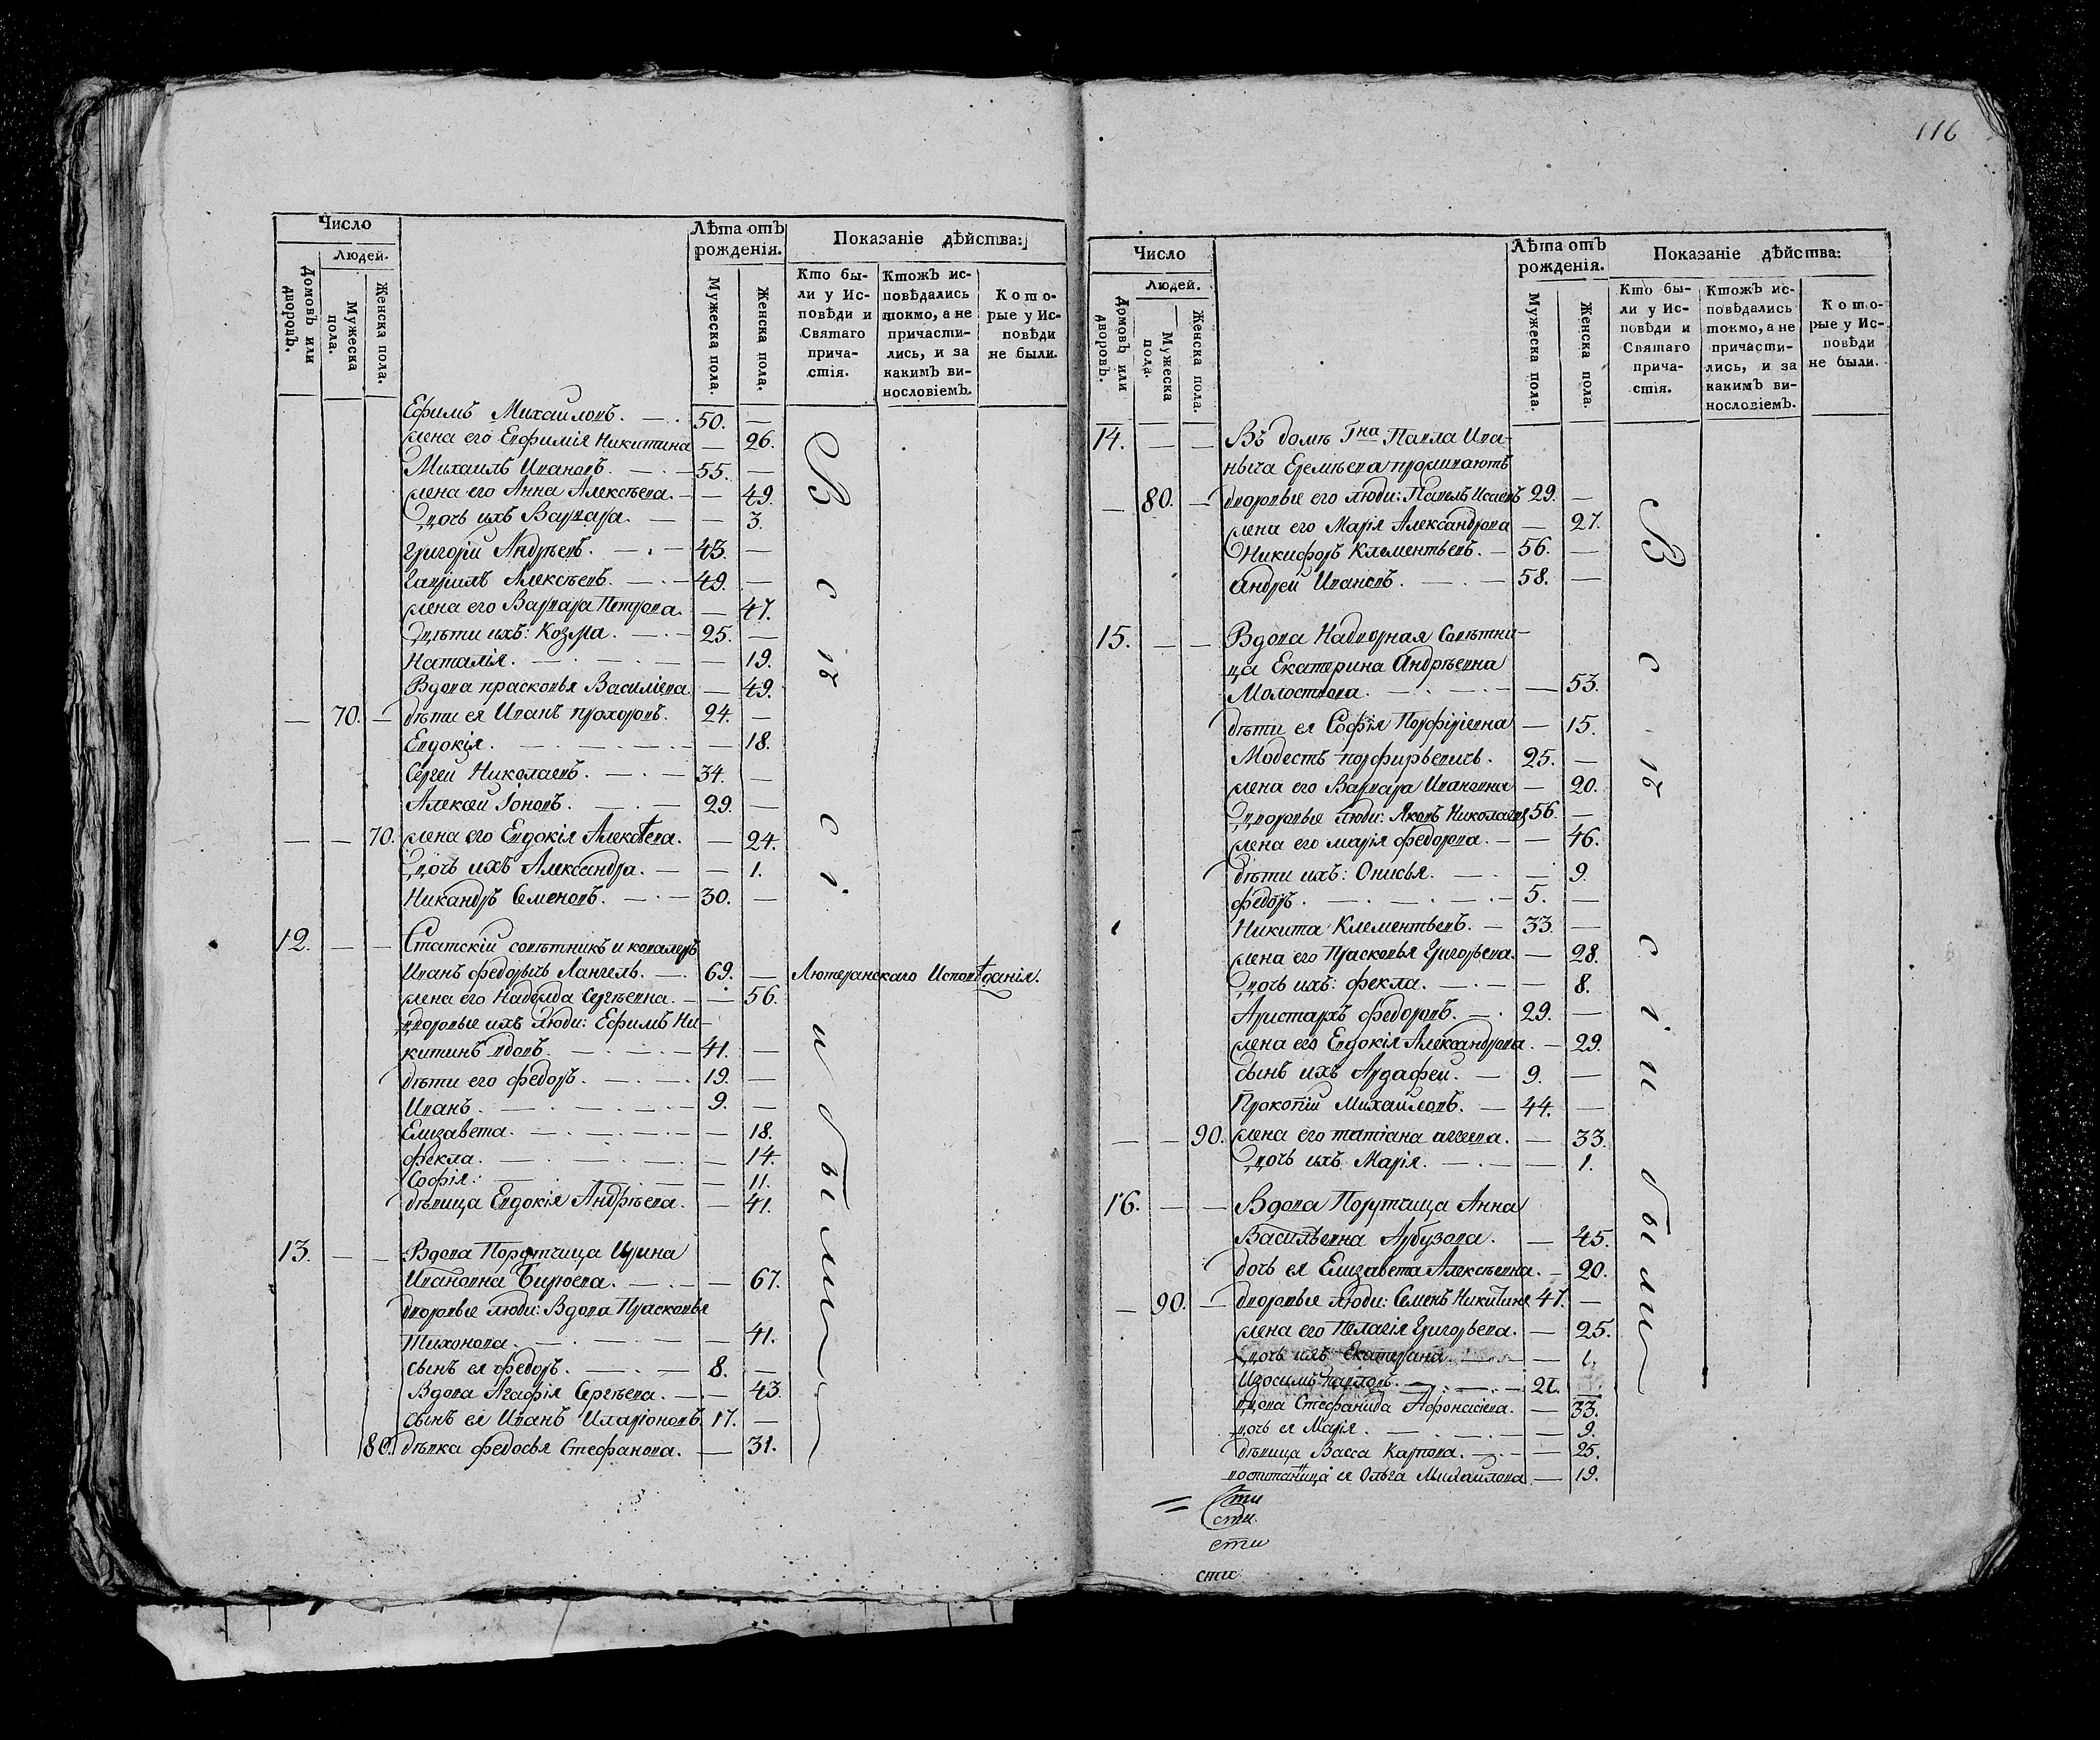 116
Число
Людей.
Домовъ или дворовъ.
Мужеска пола.
Женска пола.
Лѣта отъ рожденія.
Мужеска пола.
Женска пола.
Показаніе дѣйства:
Кто были у Исповѣди и Святаго причастія.
Ктожъ исповѣдались токмо, а не причастились, и за какимъ винословіемъ.
Которые у Исповѣди не были.
Ефимъ Михаиловъ. 50. —
жена его Евфимія Никитина — 26.
Михаилъ Ивановъ. 55. —
жена его Анна Алексѣева. — 49.
дочь ихъ Варвара. — 3.
Григорій Андрѣевъ. 43. —
Гавріилъ Алексѣевъ. 49. —
жена его Варвара Петрова. — 47.
дѣти ихъ: Козма. 25. —
Наталія. — 19.
Вдова Прасковья Василіева. — 49.
— 70. — дѣти ея Иванъ Прохоровъ. 24. —
Евдокія. — 18.
Сергей Николаевъ. 34. —
Алексей Іоновъ. 29. —
— — 70. жена его Евдокія Алексѣева. — 24.
дочь ихъ Александра. — 1.
Никандръ Семеновъ. 30. —
12. — — Статскій совѣтникъ и кавалеръ
Иванъ Федорычъ Лангель. 69. — Лютеранскаго Исповѣданія.
жена его Надежда Сергѣевна. — 56.
дворовые ихъ люди: Ефимъ Ни-
китинъ вдовъ. 41. —
дѣти его Федоръ. 19. —
Иванъ. 9. —
Елизавета. — 18.
Фекла. — 14.
Софія. — 11.
дѣвица Евдокія Андрѣева. — 41.
13. — — Вдова Порутчица Ирина
Ивановна Бирюева. — 67.
дворовые люди: Вдова Прасковья
Тихонова. — 41.
сынъ ея Федоръ. 8. —
Вдова Агафія Сергѣева. — 43.
сынъ ея Иванъ Иларіоновъ. 17. —
80. дѣвка Федосья Стефанова. — 31.
Всѣ сіи были
Число
Людей.
Домовъ или дворовъ.
Мужеска пола.
Женска пола.
Лѣта отъ рожденія.
Мужеска пола.
Женска пола.
Показаніе дѣйства:
Кто были у Исповѣди и Святаго причастія.
Ктожъ исповѣдались токмо, а не причастились, и за какимъ винословіемъ.
Которые у Исповѣди не были.
14. — — Въ домѣ Гна Павла Ива-
ныча Еремѣева проживаютъ
— 80. — дворовые его люди: Павелъ Исаевъ 29. —
жена его Марія Александрова — 27.
Никифоръ Клементьевъ. 56. —
Андрей Ивановъ. 58. —
15. — — Вдова Надворная Совѣтни-
ца Екатерина Андрѣевна
Молоствова. — 53.
дѣти ея Софія Порфиріевна — 15.
Модестъ Порфирьевичъ. 25. —
жена его Варвара Ивановна — 20.
дворовые люди: Яковъ Николаевъ 56. —
жена его Марія Федорова. — 46.
дѣти ихъ: Онисья. — 9.
Федоръ. 5. —
Никита Клементьевъ. 33. —
жена его Прасковья Григорьева. — 28.
дочь ихъ: Фекла. — 8.
Аристархъ Федоровъ. 29. —
жена его Евдокія Александрова. — 29.
сынъ ихъ Ардафей. 9. —
Прокопій Михайловъ. 44. —
— — 90. жена его Татіана Аггеева. — 33.
дочь ихъ Марія. — 1.
16. — — Вдова Порутчица Анна
Васильевна Арбузова. — 45.
дочь ея Елизавета Алексѣевна. — 20.
— 90. — дворовые люди: Семенъ Никитинъ 47. —
жена его Пелагія Григорьева. — 25.
дочь ихъ Екатерина. — 1.
Изосимъ Карповъ. 21. —
вдова Стефанида Афонасіева. — 33.
дочь ея Марія. — 9.
дѣвица Васса Карпова. — 25.
воспитаница ея Ольга Михайлова — 19.
Всѣ сіи были
сти
сти.
сти
сти